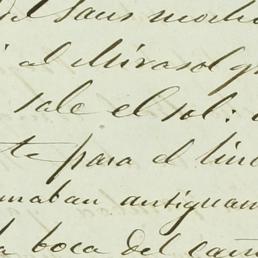 del Saus
al Mirasol
sale el sol:
te para el lin
maban antiguam
la boca del cam